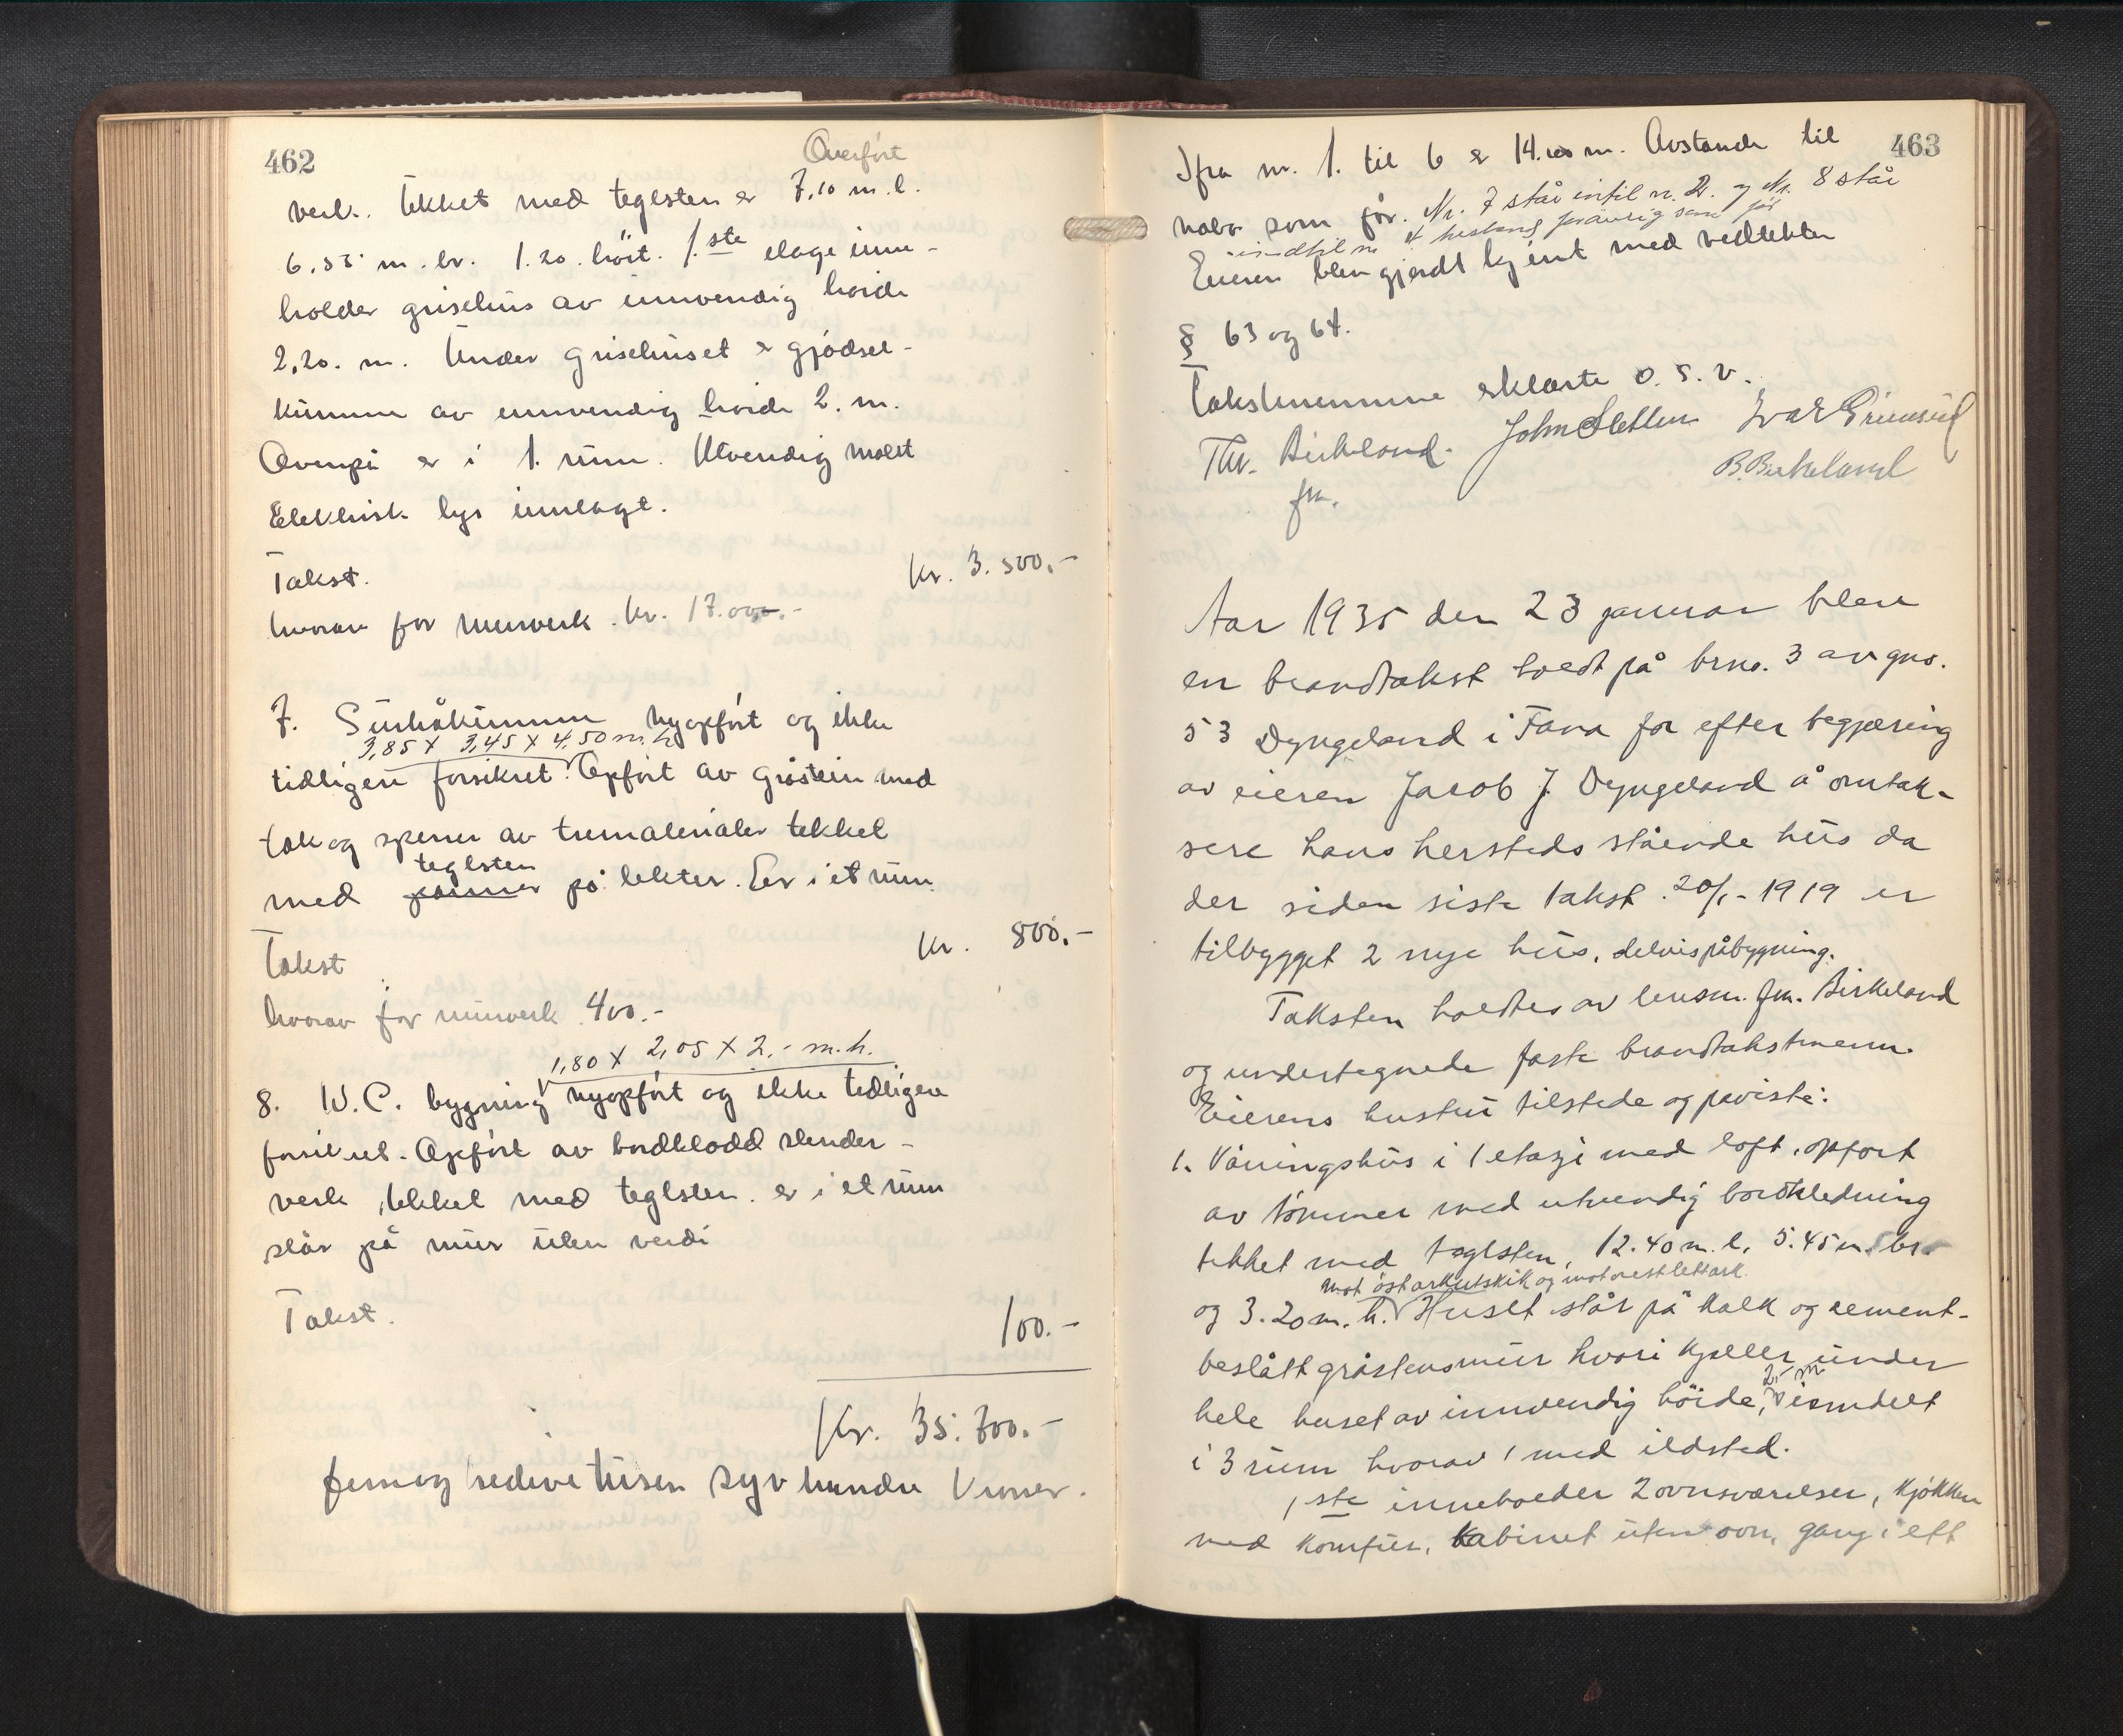 462
Overført
verk. tekket med teglsten er 7,10 m. l.
6.55 m. br. 1.20. höit. 1.ste etage inne-
holder grisehus av innvendig höide
2,20. m. Under grisehuset er gjödsel-
kumme av innvendig höide 2. m.
Ovenpå er i 1. rum. Utvendig malt
Elektrisk lys innlagt.
Takst. Kr. 3.500.-
hvorav for murverk. Kr. 17.000.-
7. Surhåkumme nyopfört og ikke
3,85 X 3,45 X 4,50 m. h.
tidligere forsikret. Opfört av gråstein med
tak og sperrer av trematerialer tekket
teglsten
med panner på lekter. Er i et rum
Takst Kr. 800.-
hvorav for murverk 400.-
1,80 X 2,05 X 2,- m. h.
8. W.C. bygning nyopfört og ikke tidligere
forsikret. Opfört av bordklædd stender-
verk, tekket med teglsten. er i et rum
står på mur uten verdi
Takst. 100.-
Kr. 35.700.-
femogtredive tusen syv hundre kroner.
463
Ifra nr. 1. til 6 er 14.00 m. Avstande til
nabo som för. Nr. 7 står inntil nr. 2. og Nr. 8 står
inndtil nr. 4 forövrig som för
Eieren blev gjordt kjent med vedtekter
§ 63 og 64.
Takstmennene erklærte o. s. v.
Th. Birkeland. John Sletten Ivar Grimseid
fm. B. Birkeland
Aar 1935 den 23 januar blev
en brandtakst holdt på brno. 3 av gno.
53 Dyngeland i Fana for efter begjæring
av eieren Jacob J. Dyngeland å omtak-
sere hans hersteds stående hus da
der siden siste takst 20/1-1919 er
tilbygget 2 nye hus, delvis påbygning.
Taksten holdtes av lensm. fm. Birkeland
og undertegnede faste brandtakstmenn.
Eierens hustru tilstede og påviste:
1. Våningshus i 1 etasje med loft, opfört
av tömmer med utvendig bordkledning
tekket med teglsten, 12.40 m. l, 5.45 m. br.
mot öst arkutskik og mot vest lettark.
og 3.20 m. h. Huset står på kalk og sement-
beslått gråstensmur hvori kjeller under
2,- m
hele huset av innvendig höide, inndelt
i 3 rum hvorav 1 med ildsted.
1ste inneholder 2 ovnsværelser, kjökken
med komfur, kabinet uten ovn, gang i ett